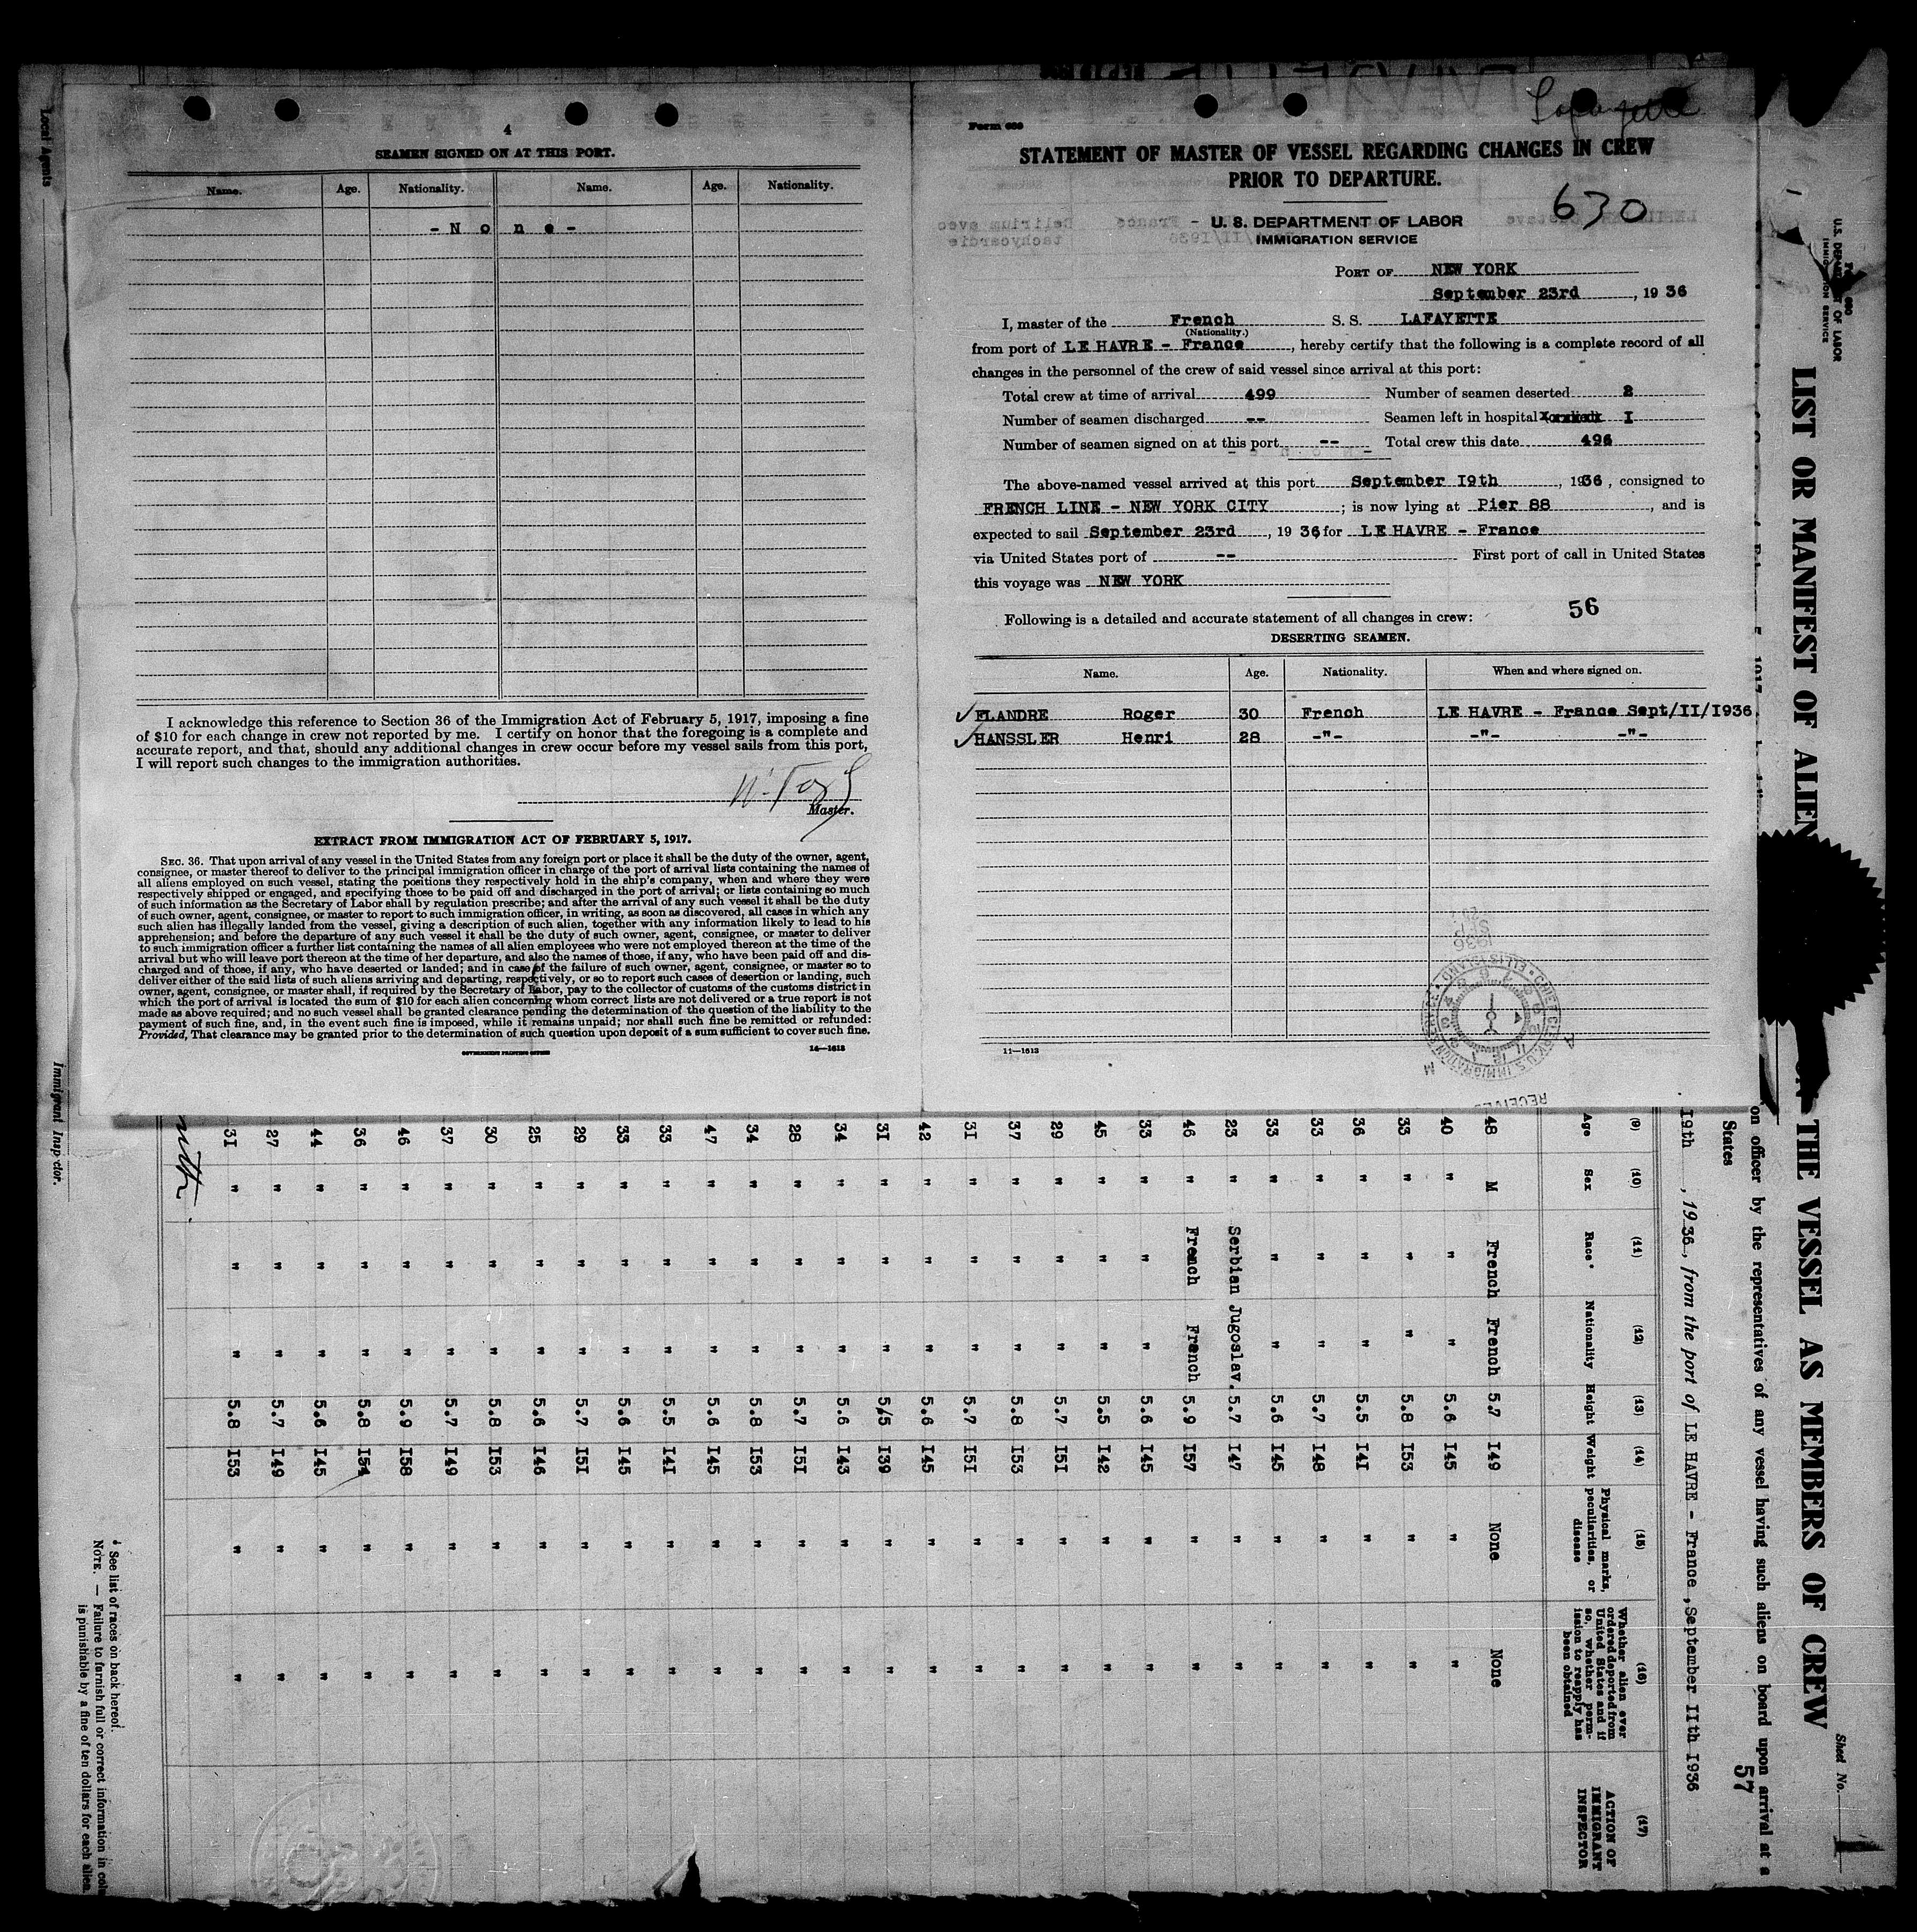 4
SEAMEN SIGNED ON AT THIS PORT.
Name. Age. Nationality. Name. Age. Nationality.
- N o n e -
I acknowledge this reference to Section 36 of the Immigration Act of February 5, 1917, imposing a fine
of $10 for each change in crew not reported by me. I certify on honor that the foregoing is a complete and
accurate report, and that, should any additional changes in crew occur before my vessel sails from this port,
I will report such changes to the immigration authorities.
Master.
EXTRACT FROM IMMIGRATION ACT OF FEBRUARY 5, 1917.
SEC. 36. That upon arrival of any vessel in the United States from any foreign port or place it shall be the duty of the owner, agent,
consignee, or master thereof to deliver to the principal immigration officer in charge of the port of arrival lists containing the names of
all aliens employed on such vessel, stating the positions they respectively hold in the ship's company, when and where they were
respectively shipped or engaged, and specifying those to be paid off and discharged in the port of arrival; or lists containing so much
of such information as the Secretary of Labor shall by regulation prescribe; and after the arrival of any such vessel it shall be the duty
of such owner, agent, consignee, or master to report to such immigration officer, in writing, as soon as discovered, all cases in which any
such alien has illegally landed from the vessel, giving a description of such alien, together with any information likely to lead to his
apprehension; and before the departure of any such vessel it shall be the duty of such owner, agent, consignee, or master to deliver
to such immigration officer a further list containing the names of all alien employees who were not employed thereon at the time of the
arrival but who will leave port thereon at the time of her departure, and also the names of those, if any, who have been paid off and dis-
charged and of those, if any, who have deserted or landed; and in case of the failure of such owner, agent, consignee, or master so to
deliver either of the said lists of such aliens arriving and departing, respectively, or so to report such cases of desertion or landing, such
owner, agent, consignee, or master shall, if required by the Secretary of Labor, pay to the collector of customs of the customs district in
which the port of arrival is located the sum of $10 for each alien concerning whom correct lists are not delivered or a true report is not
made as above required; and no such vessel shall be granted clearance pending the determination of the question of the liability to the
payment of such fine, and, in the event such fine is imposed, while it remains unpaid; nor shall such fine be remitted or refunded:
Provided, That clearance may be granted prior to the determination of such question upon deposit of a sum sufficient to cover such fine.
GOVERNMENT PRINTING OFFICE 14—1613
Lafayette
Form 689
STATEMENT OF MASTER OF VESSEL REGARDING CHANGES IN CREW
PRIOR TO DEPARTURE.
630
U. S. DEPARTMENT OF LABOR
IMMIGRATION SERVICE
PORT OF NEW YORK
September 23rd, 1936
I, master of the French S. S. LAFAYETTE
(Nationality.)
from port of LE HAVRE - France, hereby certify that the following is a complete record of all
changes in the personnel of the crew of said vessel since arrival at this port:
Total crew at time of arrival 499 Number of seamen deserted 2
Number of seamen discharged -- Seamen left in hospital I
Number of seamen signed on at this port -- Total crew this date 496
The above-named vessel arrived at this port September I9th, 1936, consigned to
FRENCH LINE - NEW YORK CITY; is now lying at Pier 88, and is
expected to sail September 23rd, 1936 for LE HAVRE - France
via United States port of -- First port of call in United States
this voyage was NEW YORK
56
Following is a detailed and accurate statement of all changes in crew:
DESERTING SEAMEN.
Name. Age. Nationality. When and where signed on.
FLANDRE Roger 30 French LE HAVRE - France Sept/II/I936
HANSSLER Henri 28 -"- -"- -"-
11—1613
Local Agents
Immigrant Inspector.
U.S. DEPARTMENT OF LABOR
IMMIGRATION SERVICE
Sheet No. 1
LIST OR MANIFEST OF ALIEN
THE VESSEL AS MEMBERS OF CREW
on officer by the representatives of any vessel having such aliens on board upon arrival at a
States
57
I9th, 1936, from the port of LE HAVRE - France, September IIth I936
(9) (10) (11) (12) (13) (14) (15) (16) (17)
Age Sex Race* Nationality Height Weight Physical marks, peculiarities, or disease Whether alien ever ordered deported from United States and if so, whether permission to reapply has been obtained ACTION OF IMMIGRANT INSPECTOR
48 M French French 5.7 I49 None None
40 " " " 5.6 I45 " "
33 " " " 5.8 I53 " "
36 " " " 5.5 I4I " "
33 " " " 5.7 I48 " "
33 " " " 5.6 I45 " "
23 " Serbian Jugoslav. 5.7 I47 " "
46 " French French 5.9 I57 " "
33 " " " 5.6 I45 " "
45 " " " 5.5 I42 " "
29 " " " 5.7 I5I " "
37 " " " 5.8 I53 " "
3I " " " 5.7 I5I " "
42 " " " 5.6 I45 " "
3I " " " 5/5 I39 " "
34 " " " 5.6 I43 " "
28 " " " 5.7 I5I " "
34 " " " 5.8 I53 " "
47 " " " 5.6 I45 " "
33 " " " 5.5 I4I " "
33 " " " 5.6 I45 " "
29 " " " 5.7 I5I " "
25 " " " 5.6 I46 " "
30 " " " 5.8 I53 " "
37 " " " 5.7 I49 " "
46 " " " 5.9 I58 " "
36 " " " 5.8 I54 " "
44 " " " 5.6 I45 " "
27 " " " 5.7 I49 " "
3I " " " 5.8 I53 " "
* See list of races on back hereof.
NOTE. — Failure to furnish full or correct information in
is punishable by a fine of ten dollars for each alien